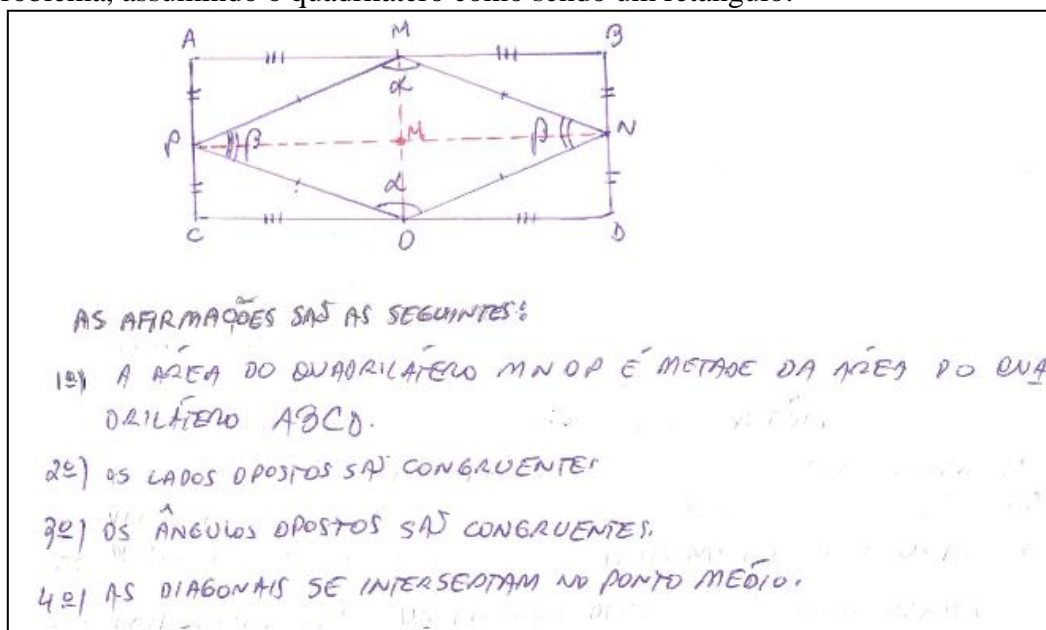 roblema, assumindo o quadrilátero como sendo um retângulo.
A M B
α
P β M β N
α
C O D
AS AFIRMAÇÕES SÃO AS SEGUINTES:
1º) A ÁREA DO QUADRILÁTERO MNOP É METADE DA ÁREA DO QUA
DRILÁTERO ABCD.
2º) OS LADOS OPOSTOS SÃO CONGRUENTES
3º) OS ÂNGULOS OPOSTOS SÃO CONGRUENTES.
4º) AS DIAGONAIS SE INTERSEPTAM NO PONTO MÉDIO.